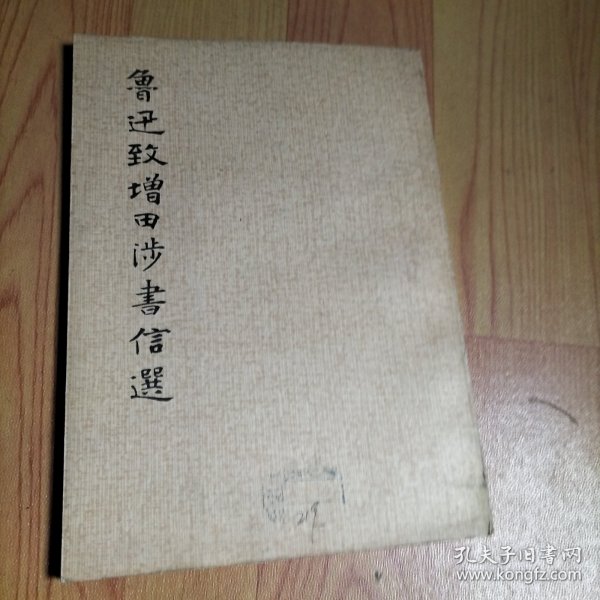 魯迅致增田涉書信選
219
孔夫子旧书网
www.kongfz.com